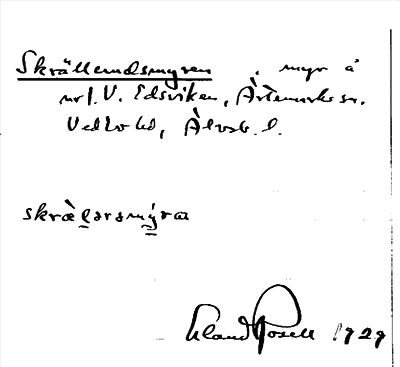 Skrällerudsmyren, myr å
nrl. V. Edsviken, Ärtemarks sn.
Vedbo hd, Älvsb. l.
skræ̀lərsmýra
Erland Rosell 1929